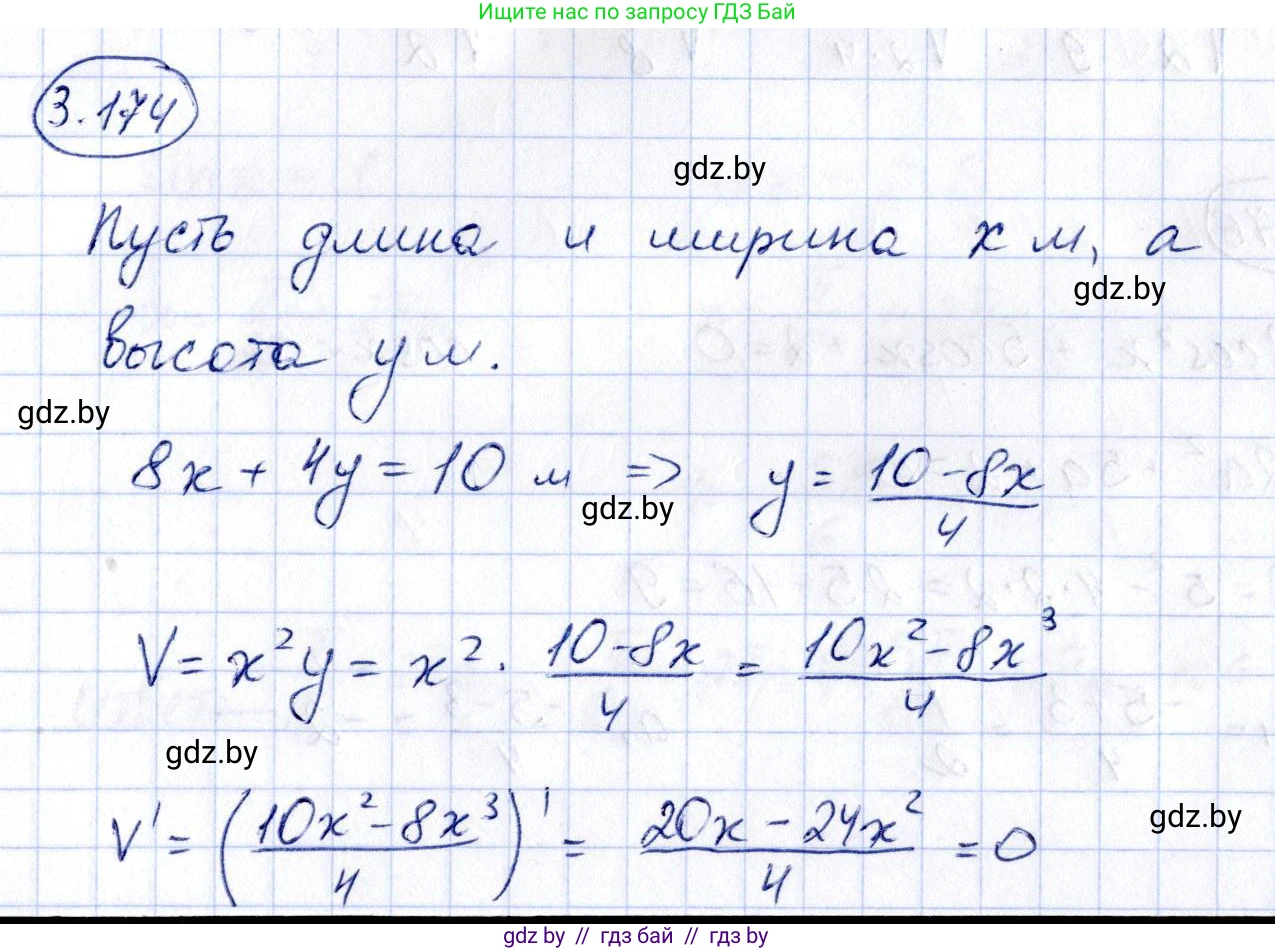 Ищите нас по запросу ГДЗ Бай
3.174
gdz.by
Пусть длина и ширина x м, а
gdz.by
высота y м.
gdz.by
8x + 4y = 10 м => y = (10-8x)/4
gdz.by
V = x²y = x² · (10-8x)/4 = (10x²-8x³)/4
gdz.by
V' = ((10x²-8x³)/4)' = (20x-24x²)/4 = 0
gdz.by
gdz by // гдз бай // gdz by